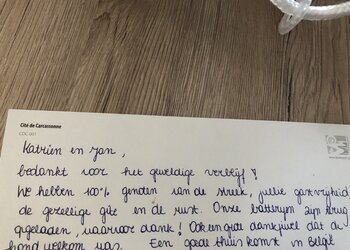 Cité de Carcassonne
CDC 001
Katrien en Jan,
bedankt voor het geweldige verblijf!
We hebben 100% genoten van de streek, jullie gastvrijheid
de gezellige gîte en de rust. Onze batterijen zijn terug
opgeladen, waarvoor dank! Ook een grote dankjewel dat de
hond welkom was. Een goede thuiskomst in België